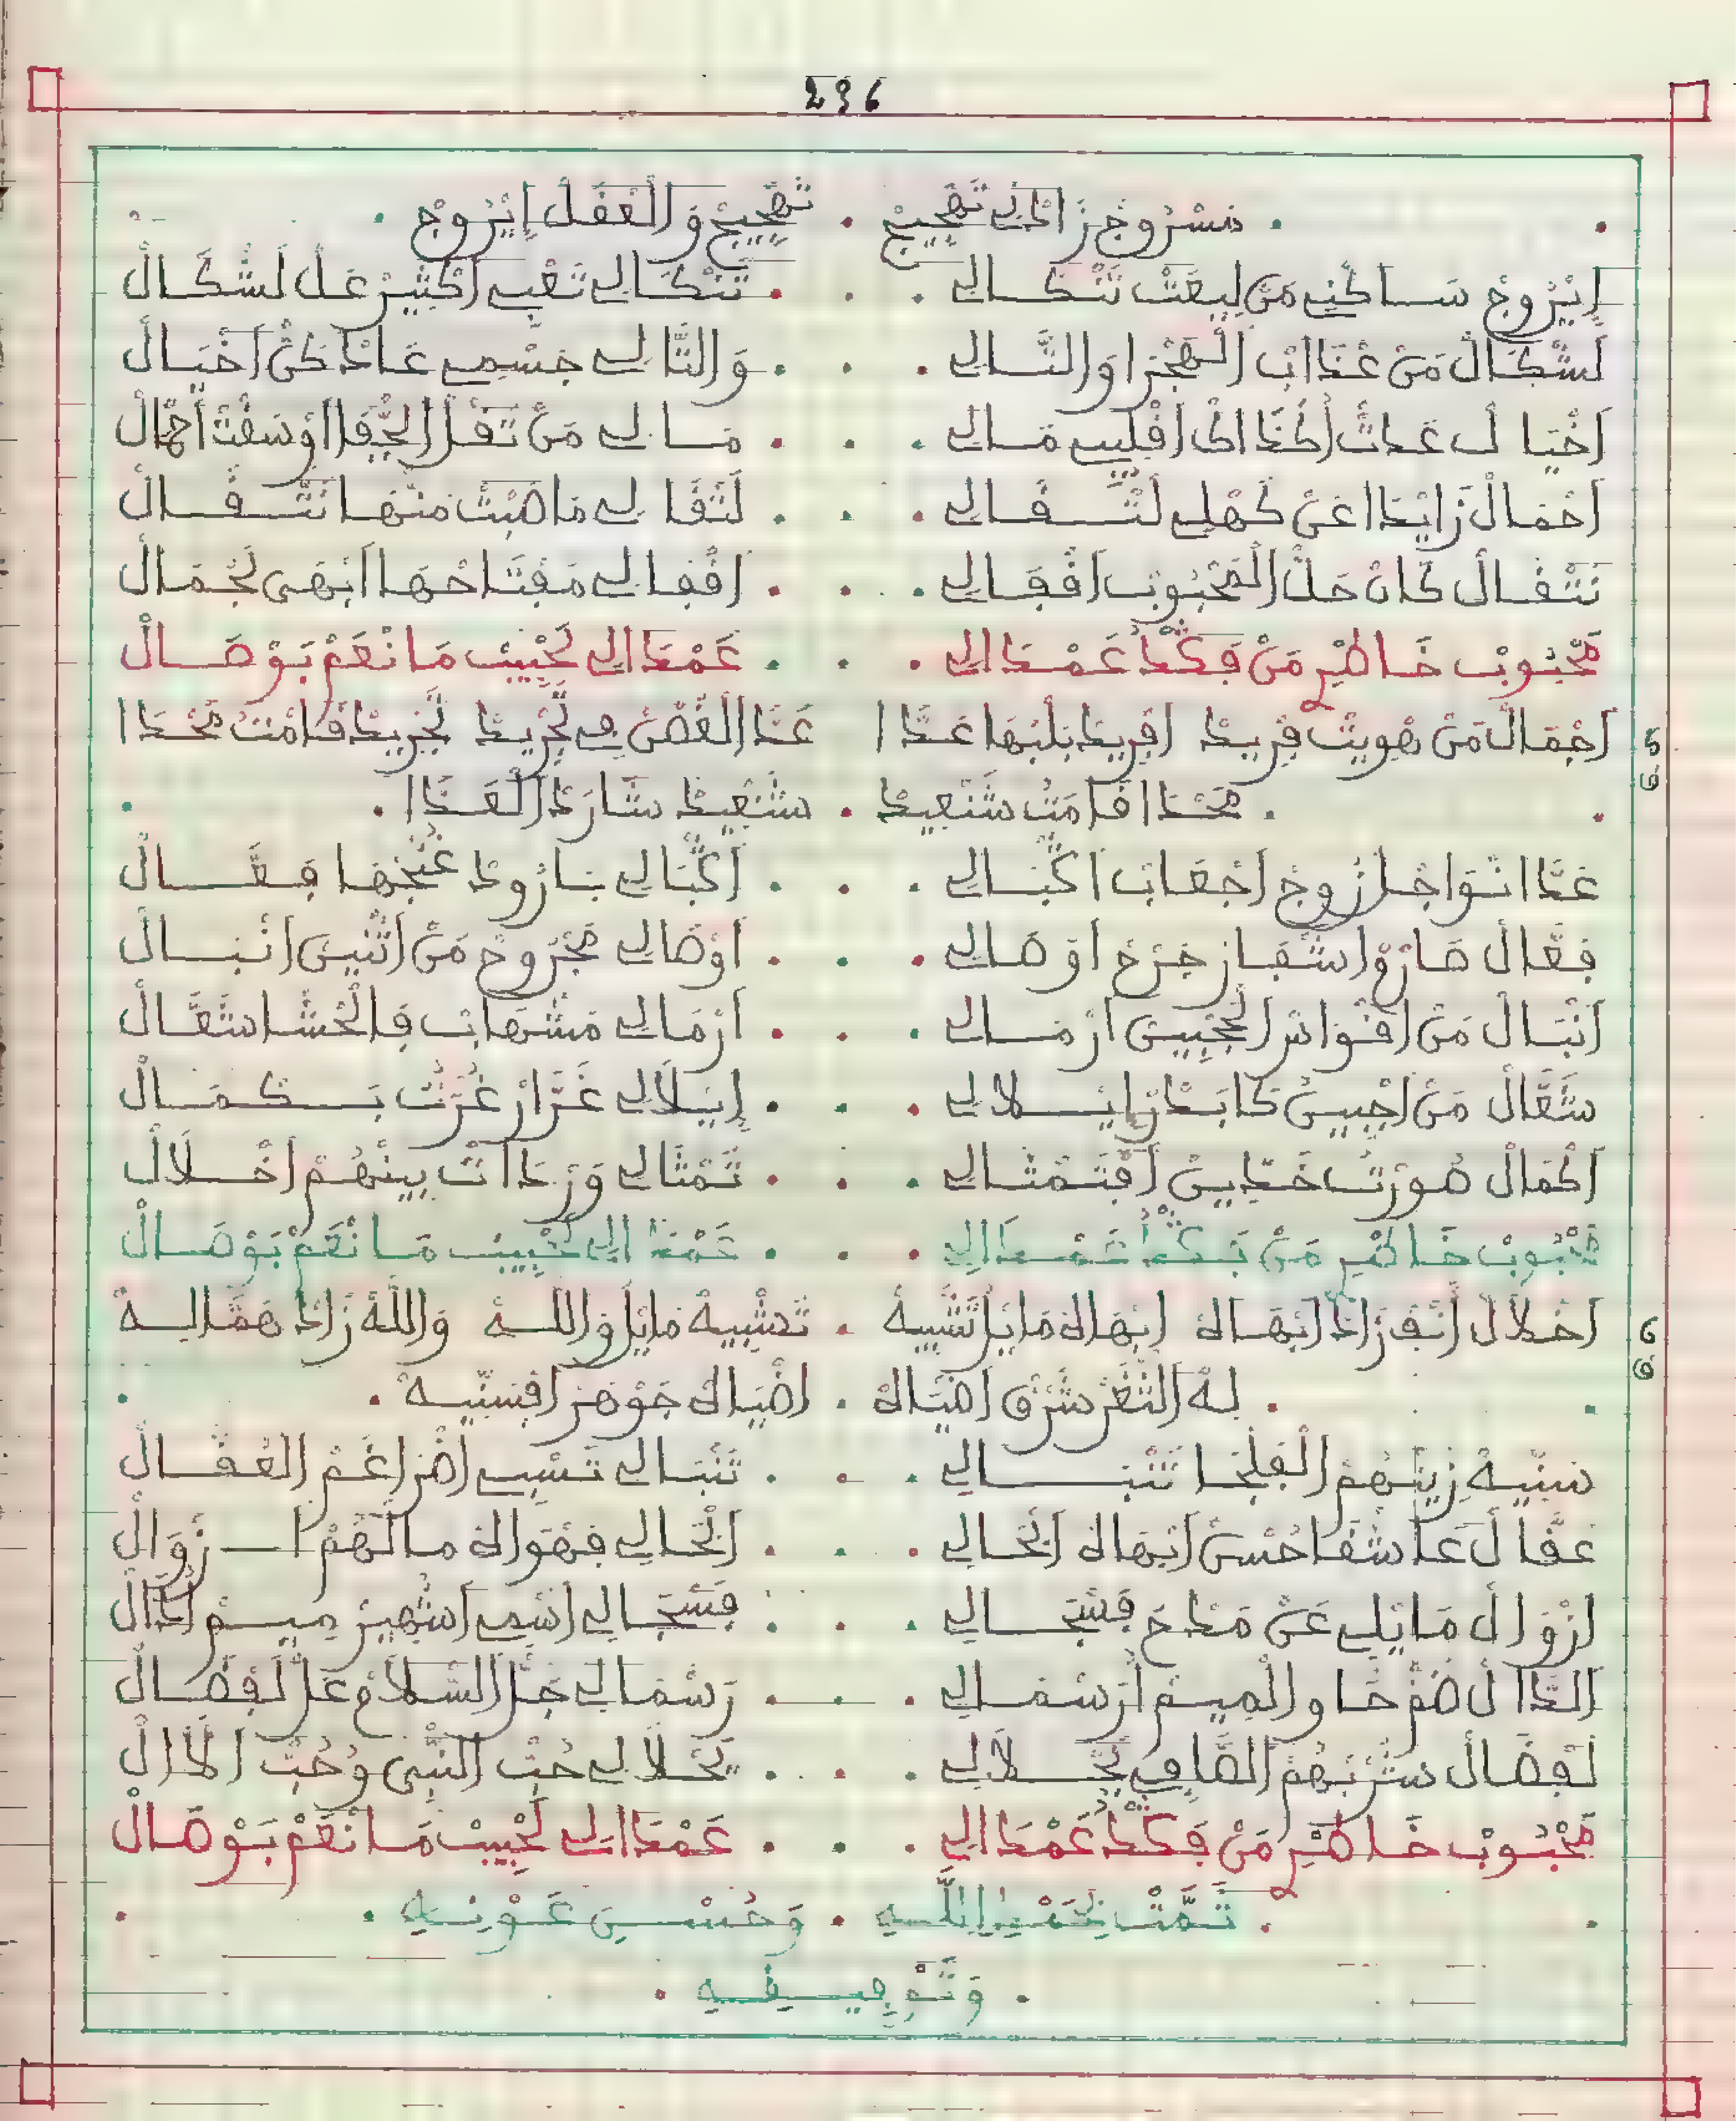 236
مَسْرُوجْ زَادْنِي تَهْيِيجْ . تَهْيِيجْ وَالْعْقَلْ اِيْرُوجْ
اِيْرُوجْ سَاكْنِي مَنْ لِيعَتْ تَنْكَالِي . تَنْكَالِي تَعْبِي اَكْثِيرْ عَلْ لَشْكَالْ
لَشْكَالْ مَنْ عْذَابْ الْهَجْرَا وَالتَّالِي . وَالتَّالِي جَسْمِي عَادْ كَنْ اَخْيَالْ
اَخْيَالْ عَدْتْ اَكْذَاكْ اَقْلِيبْ مَالِي . مَالِي مَنْ تَقْلْ الْجْفَا اَوْسَقْتْ اَحْمَالْ
اَحْمَالْ زَايْدَا عَنْ كَهْلِي لَتْقَالِي . لَتْقَالِي مَا صَبْتْ مَنْهَا نَتْقَالْ
نَتْقَالْ كَانْ حَلْ الْمَحْبُوبْ اَقْفَالِي . اَقْفَالِي مَفْتَاحْهَا اَبْهَى لَجْمَالْ
مَحْبُوبْ خَاطْرِي مَنْ فَكْدْ عَمْدَالِي . عَمْدَالِي لَحْبِيبْ مَا نْعَمْ بَوْصَالْ
5 اَجْمَالْ مَنْ هْوِيتْ فْرِيدْ اَفْرِيدْ بَلْبْهَا غَدَّا غَدَّا الْغْصَنْ فِي تَجْرِيدْ تَجْرِيدْ قَامْتْ مَحْدَا
مَحْدَا قَامَتْ سَتْعِيدْ . سَتْعِيدْ شَارَدْ الْغَدَّا
غَدَّا اَنْوَاجْلْ زُوجْ اَجْعَابْ اَكْبَالِي . اَكْبَالِي بَارُودْ غَنْجْهَا فَعَّالْ
فَعَّالْ صَارْوْ اَشْفَارْ جَرْحْ اَوْصَالِي . اَوْصَالِي مَجْرُوحْ مَنْ اَثْنِينْ اَنْبَالْ
اَنْبَالْ مَنْ اَقْوَاسْ الْحَجْبِينْ اَرْمَالِي . اَرْمَالِي مَشْهَابْ فَالْحْشَا شَعَّالْ
شَعَّالْ مَنْ اَجْبِينْ كَابَدْرْ اِيْلَالِي . اِيْلَالِي غَرَّارْ غُرّتْ بَكْمَالْ
اَكْمَالْ صُورْتْ خَدِّينْ اَفْتَمْثَالِي . تَمْثَالِي وَرْدَاتْ بِينْهُمْ اَخْلَالْ
مَحْبُوبْ خَاطْرِي مَنْ فَكْدْ عَمْدَالِي . عَمْدَالِي لَحْبِيبْ مَا نْعَمْ بَوْصَالْ
6 اَخْلَالْ اَنْفْ زَادْ اَبْهَاهْ اَبْهَاهْ مَايْلْ تَشْبِيهْ . تَشْبِيهْ مَايْلْ وَاللهْ وَاللهْ زَادْ هَمَّالِيهْ
لِهْ الثْغَرْ شَرْقْ اَضْيَاهْ . اَضْيَاهْ جَوْهَرْ اَفْسَنِّيهْ
سَنِّيهْ زِينْهُمْ الْفَلْجَا تَنْبَالِي . تَنْبَالِي تَسْبِي اَضْرَاغَمْ الْعُقَّالْ
عَقَّالْ عَاشْقَا حُسْنْ اَبْهَاهْ اَنْحَالِي . اَنْحَالِي فَهْوَاهْ مَالْهُمْ ازْوَالْ
اَزْوَالْ مَايْلِي عَنْ مَدْحْ فَسْجَالِي . فَسْجَالِي اَسْمِي اَشْهِيرْ مِيمْ اَدَالْ
الدَّالْ ضُمّ حَا وَالْمِيمْ اَرْسْمَالِي . رَسْمَالِي جَلْ السْلَامْ عَلْ لَفْضَالْ
لَفْضَالْ شَرْبْهُمْ الصَّافِي يَحْلَالِي . يَحْلَالِي حُبّْ النْبِي وَحُبّْ الْاَالْ
مَحْبُوبْ خَاطْرِي مَنْ فَكْدْ عَمْدَالِي . عَمْدَالِي لَحْبِيبْ مَا نْعَمْ بَوْصَالْ
تَمَّتْ بِحَمْدِ اِللَّهِ . وَحُسْنِ عَوْنِهِ
وَتَوْفِيقِهِ